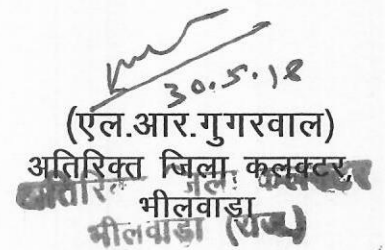 30.5.18
(एल.आर.गुगरवाल)
अतिरिक्त जिला कलक्टर,
भीलवाडा
अतिरि जिला कलक्टर
भीलवाड़ा (राज.)